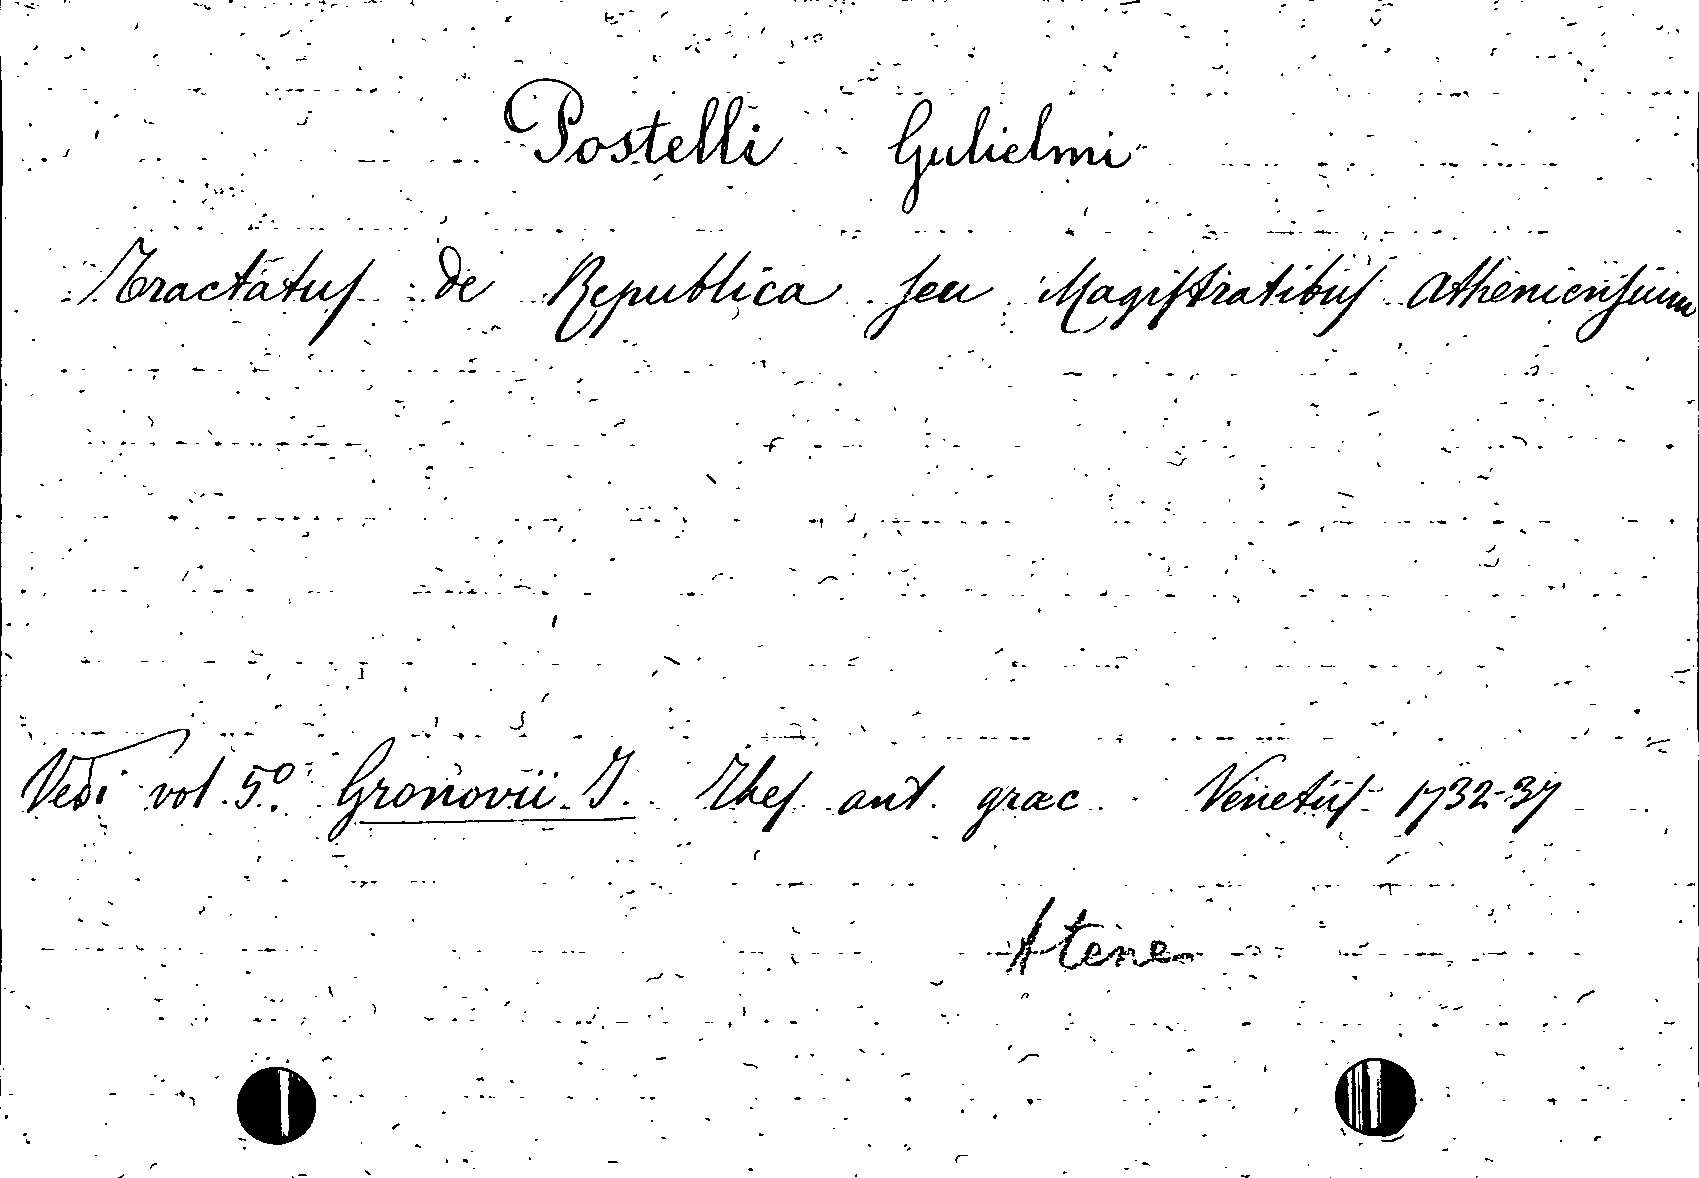 Postelli Gulielmi
Tractatus de Republica seu Magistratibus Atheniensium
Vedi vol. 5º. Gronovii J. Thes. ant. graec. Venetiis 1732-37
Atene